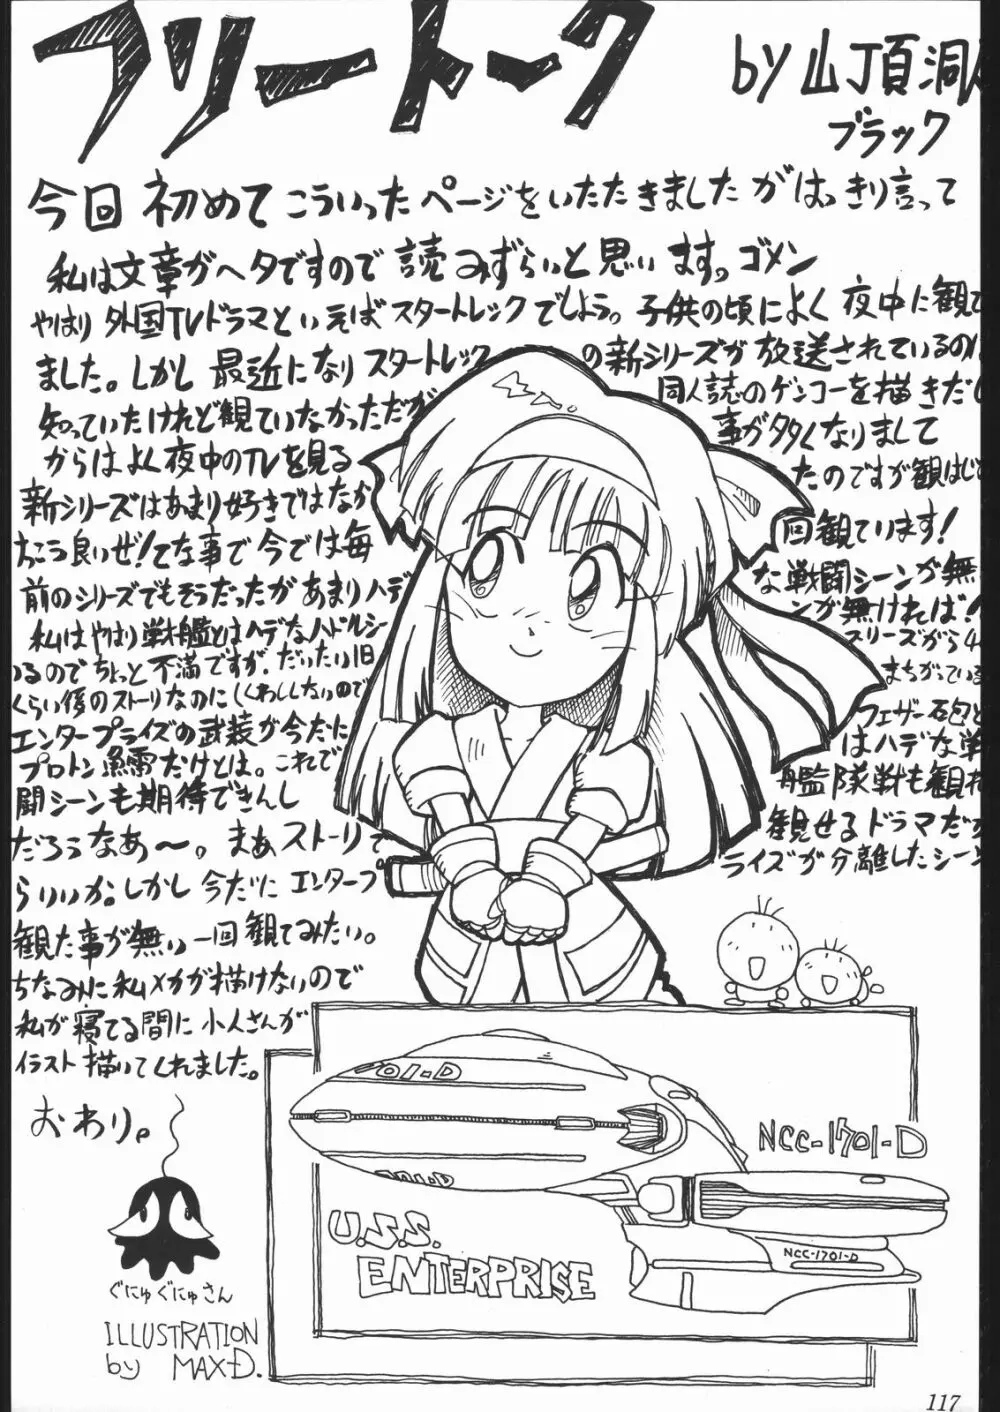 フリートーク
by 山丁頁洞
ブラック
今回 初めて こういった ページを いただきましたが はっきり言って
私は文章がヘタですので 読みずらいと思います。ゴメン
やはり 外国TVドラマといえば スタートレックでしょう。子供の頃によく 夜中に観て
ました。しかし 最近になり スタートレックの新シリーズが 放送されているのは
知っていたけれど観ていなかっただが 同人誌のゲンコーを描きだし
からは よく夜中のTVを見る 事が多くなりまして
新シリーズはあまり好きではなか たのですが観はじ
っこう良いぜ!てな事で 今では毎 回観ています!
前のシリーズでもそうだったが あまりハデ な戦闘シーンが無
私は やはり 戦艦とはハデなハドルシー ンが無ければ!
いるので ちょっと 不満ですが、だいたい旧 スリーズから4
くらい後のストーリなのに(くわしくしらないので まちがっている
エンタープライズの武装が今だに フェザー砲と
プロトン魚雷だけとは。これで はハデな戦
闘シーンも期待できんし 艦隊戦も観れ
だろうなあ〜。まぁ ストーリで 観せるドラマだか
らいいか。しかし 今だに エンタープ ライズが 分離したシーン
観た事が無い 一回 観てみたい。
ちなみに 私メカが描けないので
私が 寝てる間に 小人さんが
イラスト 描いてくれました。
おわり。
01-D
NCC-1701-D
U.S.S.
ENTERPRISE
NCC-1701-D
ぐにゅぐにゅさん
ILLUSTRATION
by MAX-D.
117